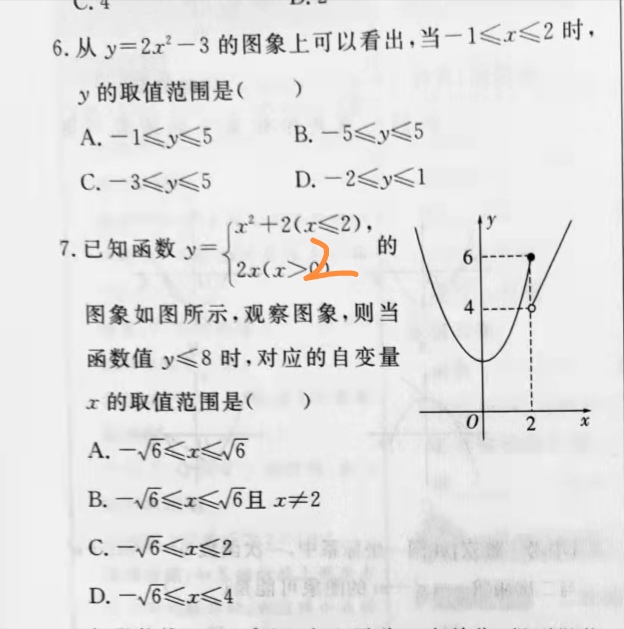 C. 4
6. 从 y=2x²-3 的图象上可以看出,当-1≤x≤2 时,
y 的取值范围是(　　)
A. -1≤y≤5　　B. -5≤y≤5
C. -3≤y≤5　　D. -2≤y≤1
7. 已知函数 y={x²+2(x≤2), 2x(x>2) 的
图象如图所示,观察图象,则当
函数值 y≤8 时,对应的自变量
x 的取值范围是(　　)
A. -√6≤x≤√6
B. -√6≤x≤√6且 x≠2
C. -√6≤x≤2
D. -√6≤x≤4
y
6
4
O 2 x